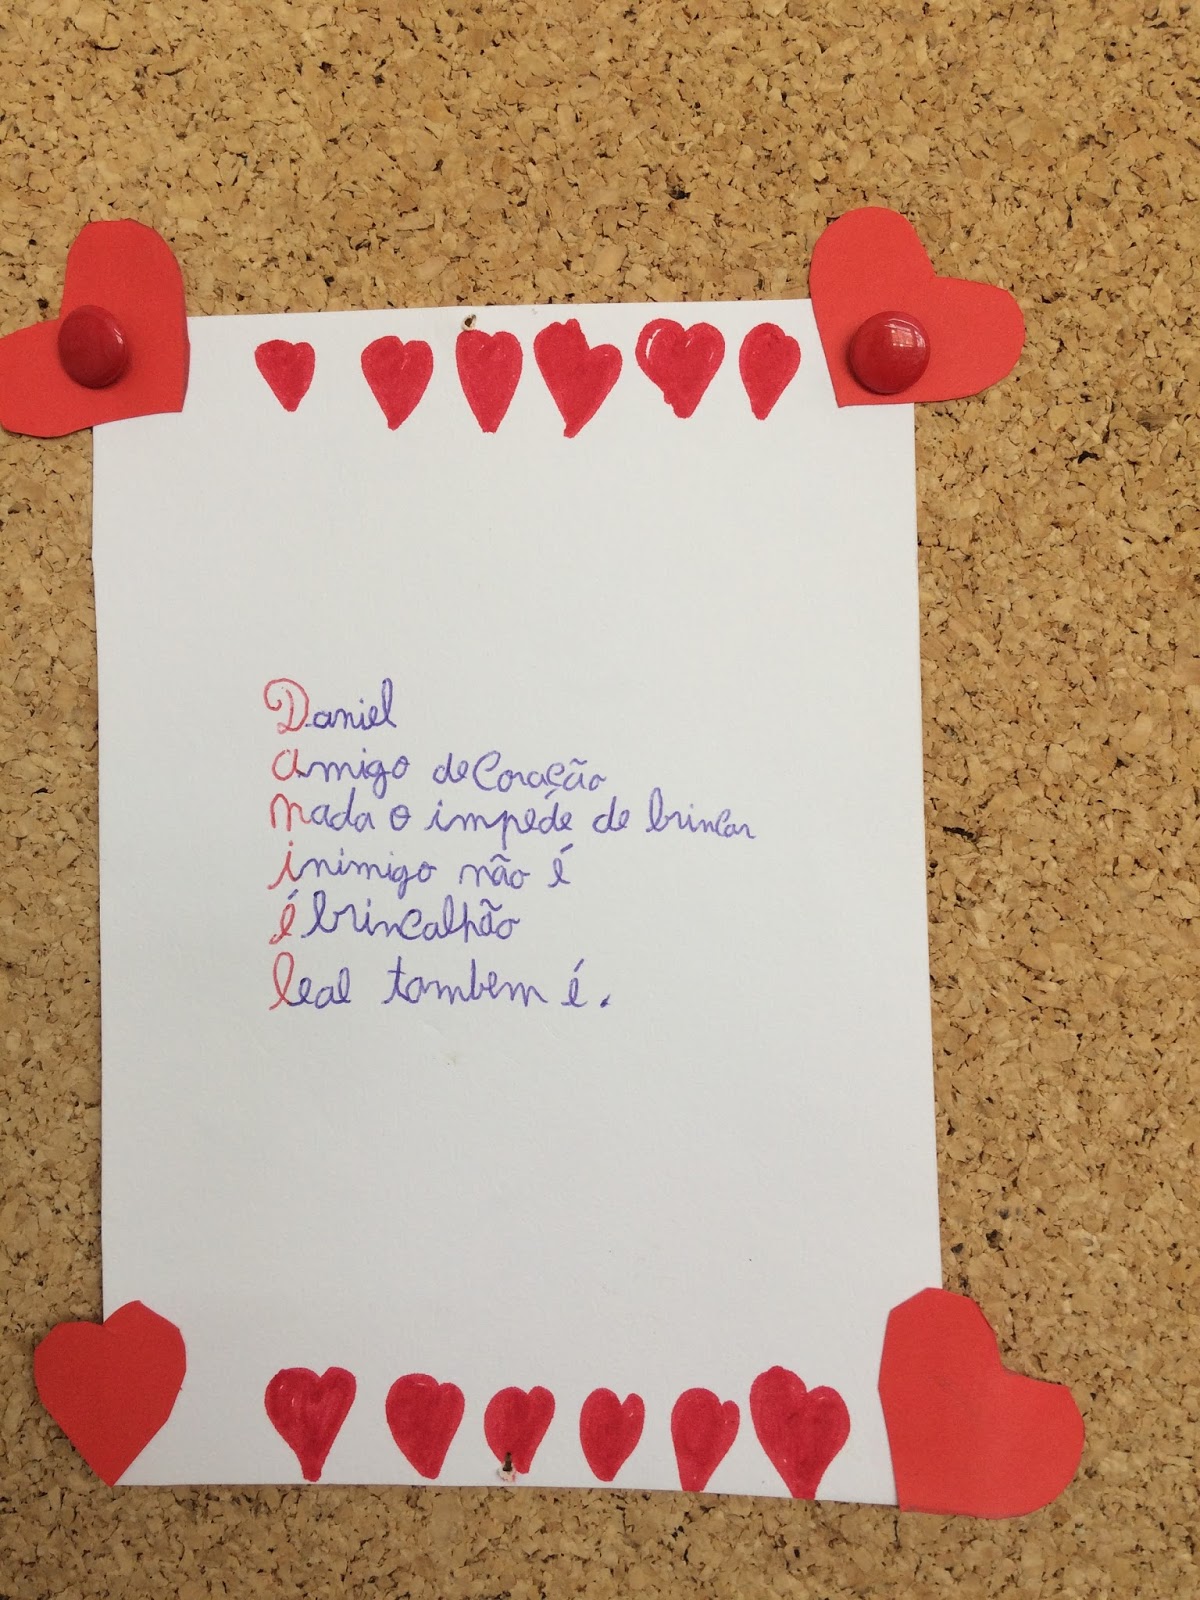 Daniel
amigo de Coração
nada o impéde de brincar
inimigo não é
é brincalhão
leal tambem é.